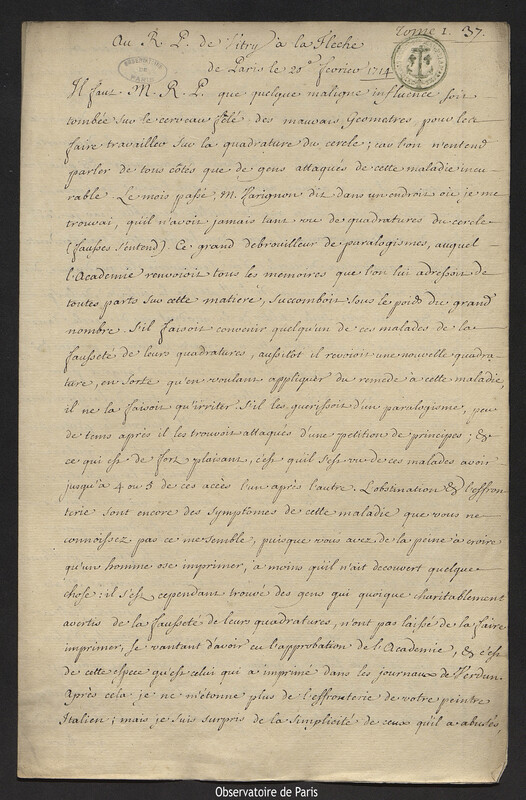 Tome 1. 37.
Au R. P. de Vitry à la Fleche
de Paris le 20e fevrier 1714
OBSERVATOIRE DE PARIS
Il faut M. R. P. que quelque maligne influence soit
tombée sur le cerveau fêlé des mauvais Geometres, pour les
faire travailler sur la quadrature du cercle; car lon n'entend
parler de tous côtés que de gens attaqués de cette maladie incu-
rable. Le mois passé, M. Varignon dit dans un endroit où je me
trouvai, qu'il n'avoit jamais tant vu de quadratures du cercle
(fausses s'entend). Ce grand debrouilleur de paralogismes, auquel
l'Academie renvoioit tous les memoires que lon lui adressoit de
toutes parts sur cette matiere, succomboit sous le poids du grand
nombre. S'il faisoit convenir quelqu'un de ces malades de la
fausseté de leurs quadratures, aussitot il revoioit une nouvelle quadra-
ture, en sorte qu'en voulant appliquer du remede à cette maladie,
il ne la faisoit qu'irriter. S'il les guerissoit d'un paralogisme, peu
de tems après il les trouvoit attaqués d'une petition de principes; &
ce qui est de fort plaisant, c'est qu'il s'est vu de ces malades avoir
jusqu'à 4 ou 5 de ces accès l'un après l'autre. L'obstination & l'effron-
terie sont encore des symptomes de cette maladie que vous ne
connoissez pas ce me semble, puisque vous avez de la peine à croire
qu'un homme ose imprimer, à moins qu'il n'ait decouvert quelque
chose: il s'est cependant trouvé des gens qui quoique charitablement
avertis de la fausseté de leurs quadratures, n'ont pas laissé de la faire
imprimer, se vantant d'avoir eu l'approbation de l'Academie, & c'est
de cette espece qu'est celui qui a imprimé dans les journaux de Verdun.
Après cela je ne m'étonne plus de l'effronterie de votre peintre
Italien; mais je suis surpris de la simplicité de ceux qu'il a abusés,
Observatoire de Paris